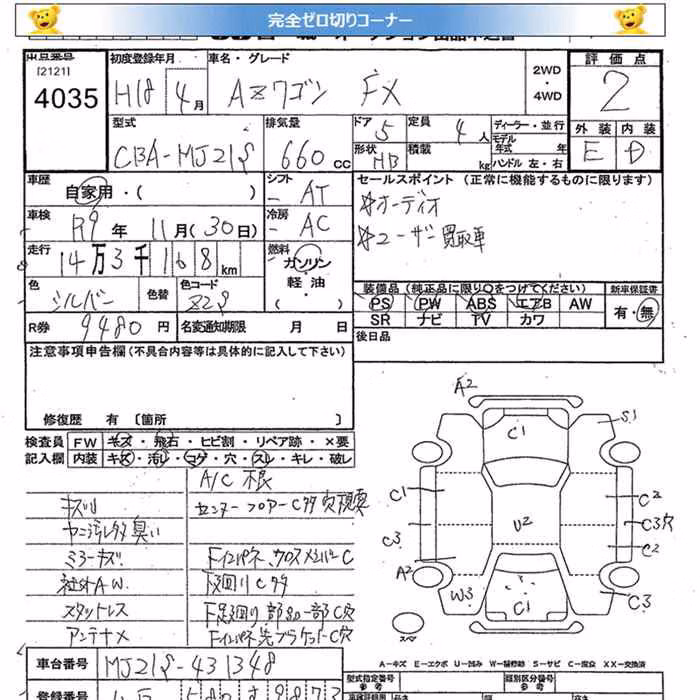 完全ゼロ切りコーナー
出品番号
[2121]
4035
初度登録年月
H18年4月
車名・グレード
AZワゴン FX
2WD
・
4WD
評価点
2
外装 内装
E D
型式
CBA-MJ21S
排気量
660cc
ドア 5
定員 4人
形状 HB
積載 kg
ディーラー・並行
モデル
年式 年
ハンドル 左・右
車歴
自家用・( )
シフト
AT
冷房
AC
燃料
ガソリン
軽油
( )
車検
R9年 11月(30日)
走行
14万3千168km
色
シルバー
色替
色コード
Z2S
R券
9480円
名変通知期限 月 日
セールスポイント (正常に機能するものに限ります)
☆オーディオ
☆ユーザー買取車
装備品 (純正品に限り○をつけてください)
新車保証書
PS PW ABS エアB AW
SR ナビ TV カワ
有・無
後日品
注意事項申告欄(不具合内容等は具体的に記入して下さい)
修復歴 有 〔箇所 〕
検査員
記入欄
FW キズ・飛石・ヒビ割・リペア跡・×要
内装 キズ・汚れ・コゲ・穴・スレ・キレ・破レ
キズU
ヤニ汚レタバ臭い
ミラーキズ
社外A.W.
スタットレス
アンテナ×
A/C 不良
センターフロアーC多
Fインパネ、クロスメンバーC
下回りC多
F足回り
A2
C1
S1
C1
C2
C3
C3穴
U2
C2
A2
W3
C1
C3
スペア
A-キズ E-エクボ U-凹み W-補修跡 S-サビ C-腐食 XX-交換済
車台番号
MJ21S-431348
登録番号
型式指定番号
参考
類別区分番号
参考